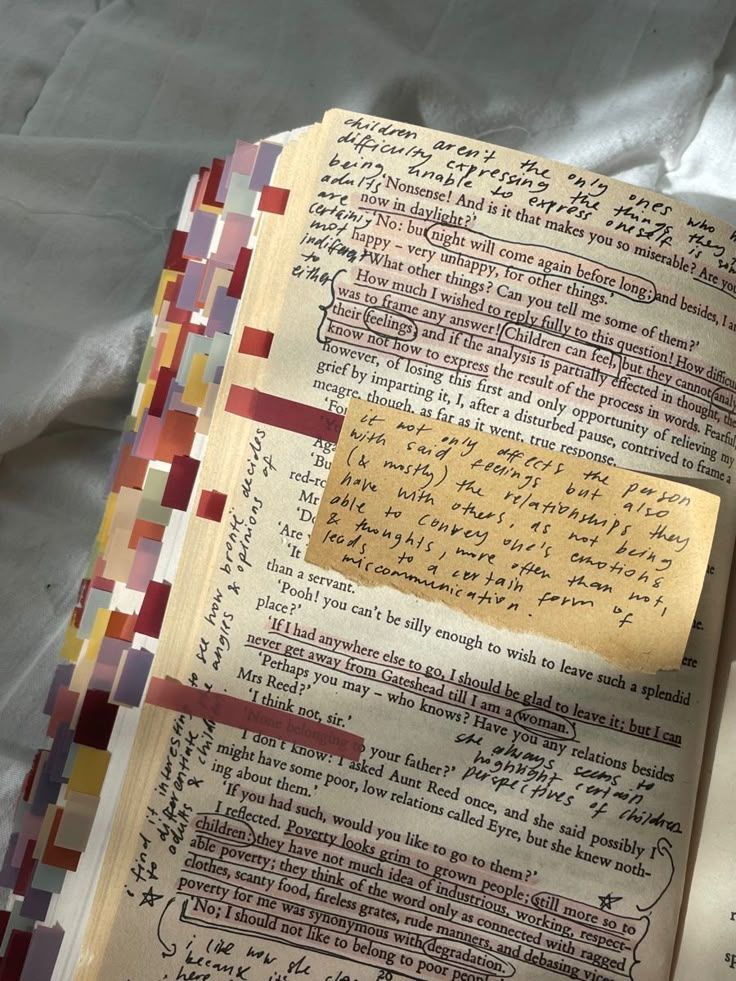 children aren't the only ones who
difficulty expressing the things they
being unable to express oneself is
adults
are
certainly
not
indifferent
to
either
'Nonsense! And is it that makes you so miserable? Are you
now in daylight?'
'No: but night will come again before long; and besides, I am
happy – very unhappy, for other things.'
'What other things? Can you tell me some of them?'
How much I wished to reply fully to this question! How difficult
was to frame any answer! Children can feel, but they cannot
their feelings; and if the analysis is partially effected in thought, they
know not how to express the result of the process in words. Fearful,
however, of losing this first and only opportunity of relieving my
grief by imparting it, I, after a disturbed pause, contrived to frame a
meagre, though, as far as it went, true response.
'For
Aga
'Bu
red-ro
Mr
'D
'Are
'It
it not only affects the person
with said feelings but also
(& mostly) the relationships they
have with others, as not being
able to convey one's emotions
& thoughts, more often than not,
leads to a certain form of
miscommunication.
than a servant.
'Pooh! you can't be silly enough to wish to leave such a splendid
place?'
'If I had anywhere else to go, I should be glad to leave it; but I can
never get away from Gateshead till I am a woman.'
'Perhaps you may – who knows? Have you any relations besides
Mrs Reed?'
'I think not, sir.'
'None belonging to your father?'
'I don't know: I asked Aunt Reed once, and she said possibly I
might have some poor, low relations called Eyre, but she knew noth-
ing about them.'
she always seems to
highlight certain
perspectives of children
'If you had such, would you like to go to them?'
I reflected. Poverty looks grim to grown people; still more so to
children: they have not much idea of industrious, working, respect-
able poverty; they think of the word only as connected with ragged
clothes, scanty food, fireless grates, rude manners, and debasing vices:
poverty for me was synonymous with degradation.
'No; I should not like to belong to poor people
i find it interesting to see how brontë decides
to differentiate the angles & opinions of
adults & children
i like how she
because
here
20